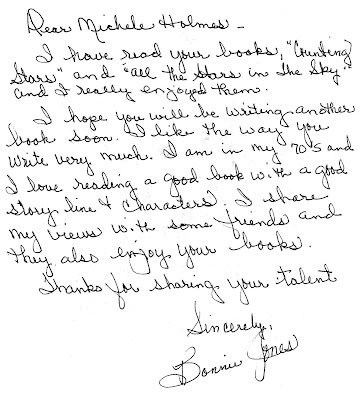 Dear Michele Holmes -
I have read your books, "Counting
Stars" and "all the Stars in the Sky"
and I really enjoyed them.
I hope you will be writing another
book soon. I like the way you
write very much. I am in my 70's and
I love reading a good book with a good
story line & characters. I share
my views with some friends and
they also enjoy your books.
Thanks for sharing your talent
Sincerely,
Bonnie Jones